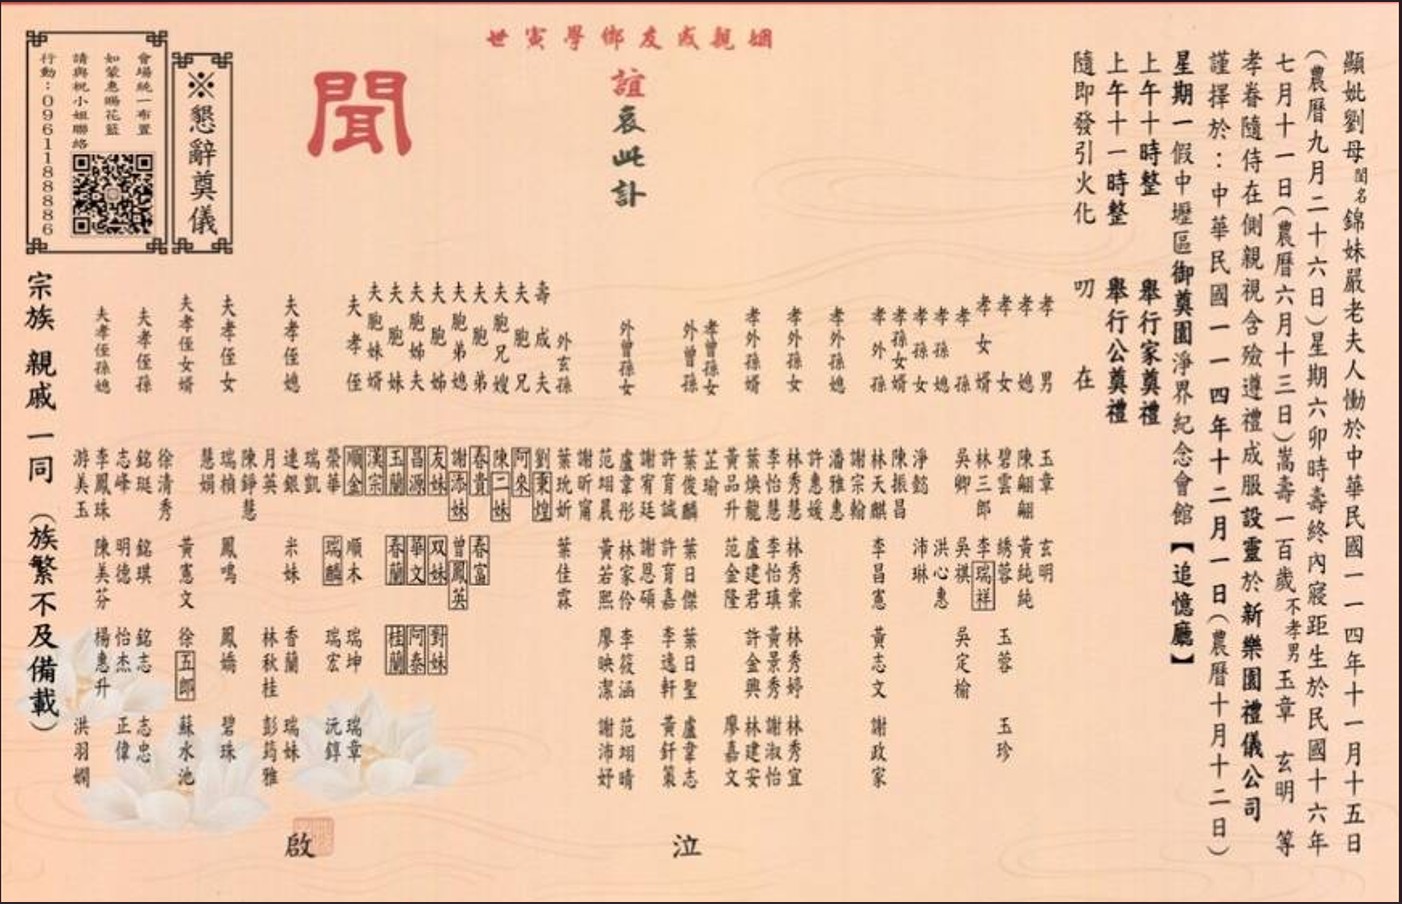 顯妣劉母閨名錦妹嚴老夫人慟於中華民國一一四年十一月十五日
(農曆九月二十六日)星期六卯時壽終內寢距生於民國十六年
七月十一日(農曆六月十三日)嵩壽一百歲不孝男玉章 玄明 等
孝眷隨侍在側親視含殮遵禮成服設靈於新樂園禮儀公司
謹擇於:中華民國一一四年十二月一日(農曆十月十二日)
星期一假中壢區御奠園淨界紀念會館【追憶廳】
上午十時整 舉行家奠禮
上午十一時整 舉行公奠禮
隨即發引火化
叨在
姻親戚友鄉學寅世
誼哀此訃
聞
孝男 玉章 玄明
孝媳 陳翩翩 黃純純
孝女 碧雲 綉蓉 玉蓉 玉珍
孝女婿 林三郎 李瑞祥
孝孫 吳卿 吳祺 吳定榆
孝孫媳 洪心惠
孝孫女 淨懿 沛琳
孝孫女婿 陳振昌
孝外孫 林天麒 李昌憲 黃志文 謝政家
謝宗翰
孝外孫媳 潘雅惠
許惠媛
孝外孫女 林秀慧 林秀棠 林秀婷 林秀宜
李怡慧 李怡瑱 黃景秀 謝淑怡
孝外孫婿 葉煥龍 盧建君 許金興 林建安
黃品升 范金隆 廖嘉文
孝曾孫女 芷瑜
外曾孫 葉俊麟 葉日傑 葉日聖 盧韋志
許育誠 許育嘉 李逸軒 黃釬策
謝宥廷 謝恩碩
外曾孫女 盧韋彤 林家伶 李筱涵 范翊晴
范翊晨 黃若熙 廖映潔 謝沛妤
謝昕甯
外玄孫 葉玧妡 葉佳霖
壽成夫 劉秉煌
夫胞兄 阿來
夫胞兄嫂 陳二妹
夫胞弟 春貴 春富
夫胞弟媳 謝添妹 曾鳳英
夫胞姊 友妹 双妹 對妹
夫胞姊夫 昌源 華文 阿泰
夫胞妹 玉蘭 春蘭 桂蘭
夫胞妹婿 漢宗
夫孝侄 順金 順木 瑞坤 瑞章
榮華 瑞麟 瑞宏 沅錞
瑞凱
夫孝侄媳 連銀 米妹 香蘭 瑞妹
月英 林秋桂 彭筠雅
陳錚慧
夫孝侄女 瑞楨 鳳鳴 鳳嬌 碧珠
慧娟
夫孝侄女婿 黃憲文 徐五郎 蘇水池
徐清秀
夫孝侄孫 銘珽 銘琪 銘志 志忠
志峰 明德 怡杰 正偉
夫孝侄孫媳 李鳳珠 陳美芬 楊惠升
游美玉 洪羽嫻
泣
啟
宗族 親戚一同 (族繁不及備載)
※懇辭奠儀
會場統一布置
如蒙惠賜花籃
請與祝小姐聯絡
行動:0961188886